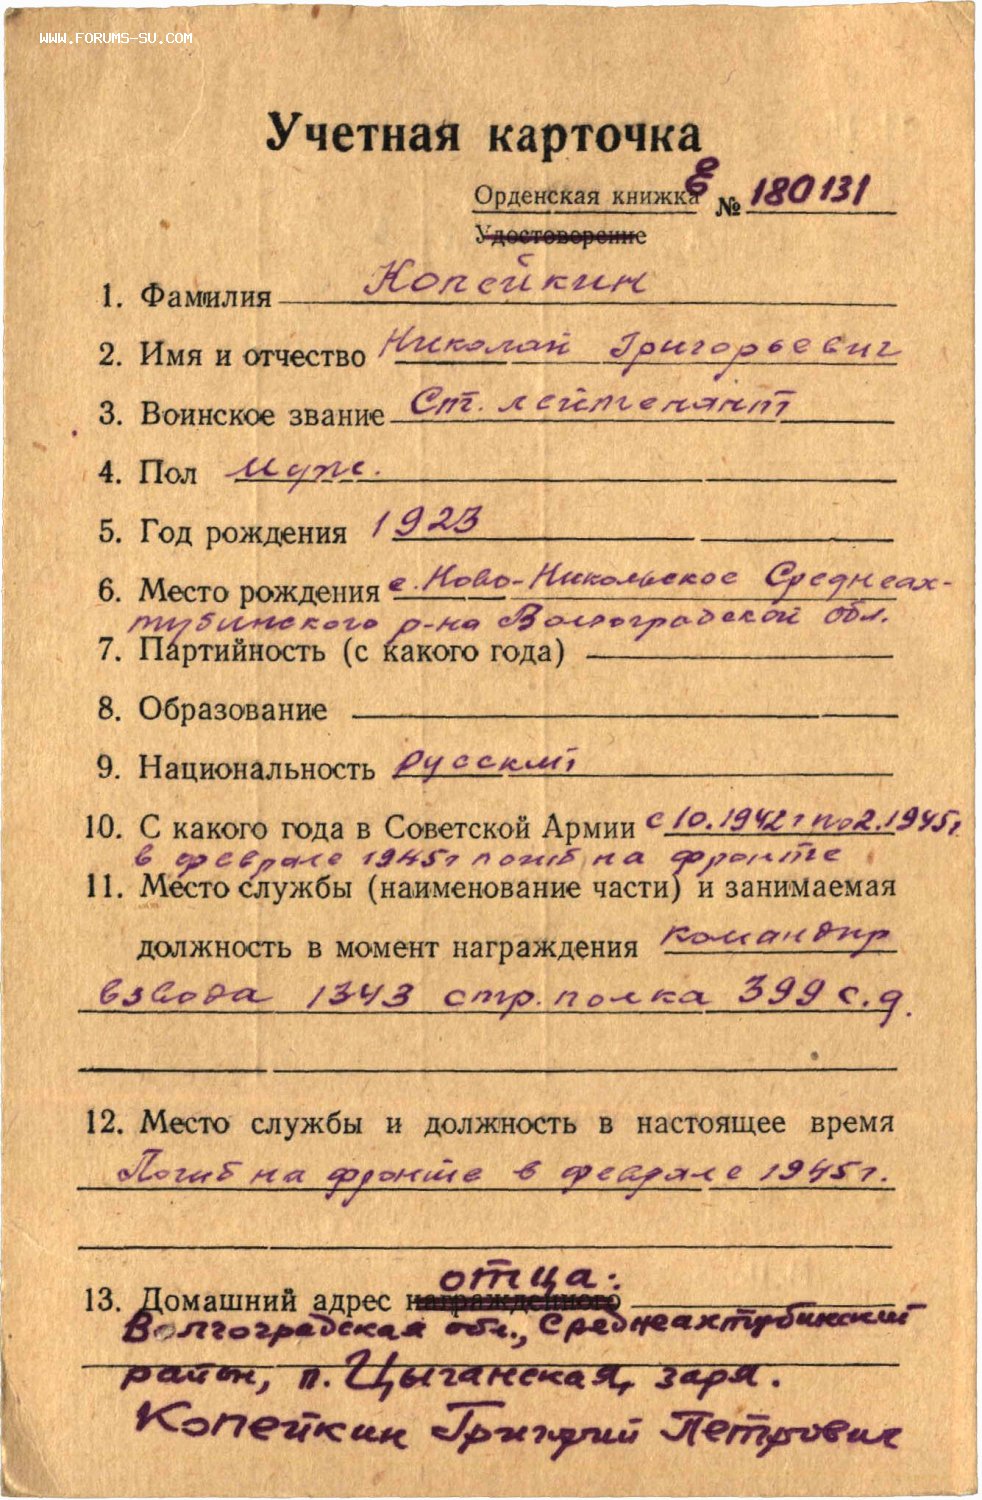 WWW.FORUMS-SU.COM
Учетная карточка
Орденская книжка № 180131
Удостоверение
1. Фамилия Копейкин
2. Имя и отчество Николай Григорьевич
3. Воинское звание Ст. лейтенант
4. Пол муж.
5. Год рождения 1923
6. Место рождения с. Ново-Никольское Среднеах-
тубинского р-на Волгоградской обл.
7. Партийность (с какого года)
8. Образование
9. Национальность русский
10. С какого года в Советской Армии с 10.1942 г по 2.1945 г.
в феврале 1945 г погиб на фронте
11. Место службы (наименование части) и занимаемая
должность в момент награждения командир
взвода 1343 стр. полка 399 с.д.
12. Место службы и должность в настоящее время
Погиб на фронте в феврале 1945 г.
отца:
13. Домашний адрес награжденного
Волгоградская обл., Среднеахтубинский
район, п. Цыганская, заря.
Копейкин Григорий Петрович